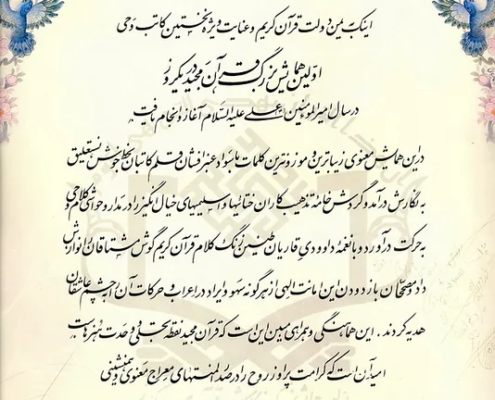 اینک به یمن دولت قرآن کریم و عنایت ویژه نخستین کاتب وحی
اولین همایش بزرگ قرآن مجید در یکروز
در سال امیرالمومنین علی علیه السلام آغاز و انجام یافت
در این همایش معنوی زیباترین و موزونترین کلمات با سواد عنبر افشان و قلم کاتبان بخط خوش نستعلیق
به نگارش درآمد و گردش خامه تذهیب کاران ختائیها و اسلیمیهای خیال انگیز را در مدار و حواشی کلام وحی
به حرکت درآورد و با نغمه داوودی قاریان طنین زنگ کلام قرآن کریم گوش مشتاقان را نوازش
داد مصححان با زدودن این امانت الهی از هرگونه سهو و ایراد در اعراب و حرکات آن را به چشم عاشقان
هدیه کردند . این هماهنگی و همراهی مبین این است که قرآن مجید نقطه تجلی وحدت هنرهاست
امید آن است که کرامت پرواز روح را در صدرالمنتهای معراج معنوی همنشینی